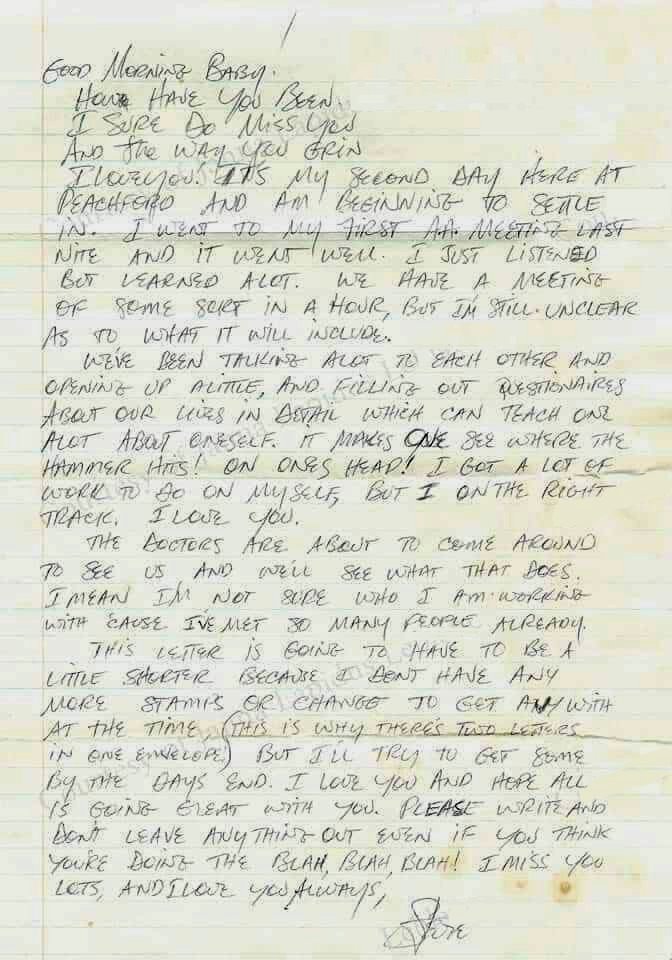 GOOD MORNING BABY.
HOW HAVE YOU BEEN.
I SURE DO MISS YOU
AND THE WAY YOU GRIN
I LOVE YOU! IT'S MY SECOND DAY HERE AT
PEACHFORD AND AM BEGINNING TO SETTLE
IN. I WENT TO MY FIRST A.A. MEETING LAST
NITE AND IT WENT WELL. I JUST LISTENED
BUT LEARNED ALOT. WE HAVE A MEETING
OF SOME SORT IN A HOUR, BUT I'M STILL UNCLEAR
AS TO WHAT IT WILL INCLUDE.
WE'VE BEEN TALKING ALOT TO EACH OTHER AND
OPENING UP ALITTLE, AND FILLING OUT QUESTIONAIRES
ABOUT OUR LIVES IN DETAIL WHICH CAN TEACH ONE
ALOT ABOUT ONESELF. IT MAKES ONE SEE WHERE THE
HAMMER HITS! ON ONES HEAD! I GOT A LOT OF
WORK TO DO ON MYSELF, BUT I ON THE RIGHT
TRACK. I LOVE YOU.
THE DOCTORS ARE ABOUT TO COME AROUND
TO SEE US AND WE'LL SEE WHAT THAT DOES.
I MEAN I'M NOT SURE WHO I AM WORKING
WITH 'CAUSE I'VE MET SO MANY PEOPLE ALREADY.
THIS LETTER IS GOING TO HAVE TO BE A
LITTLE SHORTER BECAUSE I DON'T HAVE ANY
MORE STAMPS OR CHANGE TO GET ANY WITH
AT THE TIME (THIS IS WHY THERE'S TWO LETTERS
IN ONE ENVELOPE) BUT I'LL TRY TO GET SOME
BY THE DAYS END. I LOVE YOU AND HOPE ALL
IS GOING GREAT WITH YOU. PLEASE WRITE AND
DON'T LEAVE ANYTHING OUT EVEN IF YOU THINK
YOU'RE DOING THE BLAH, BLAH, BLAH! I MISS YOU
LOTS, AND I LOVE YOU ALWAYS,